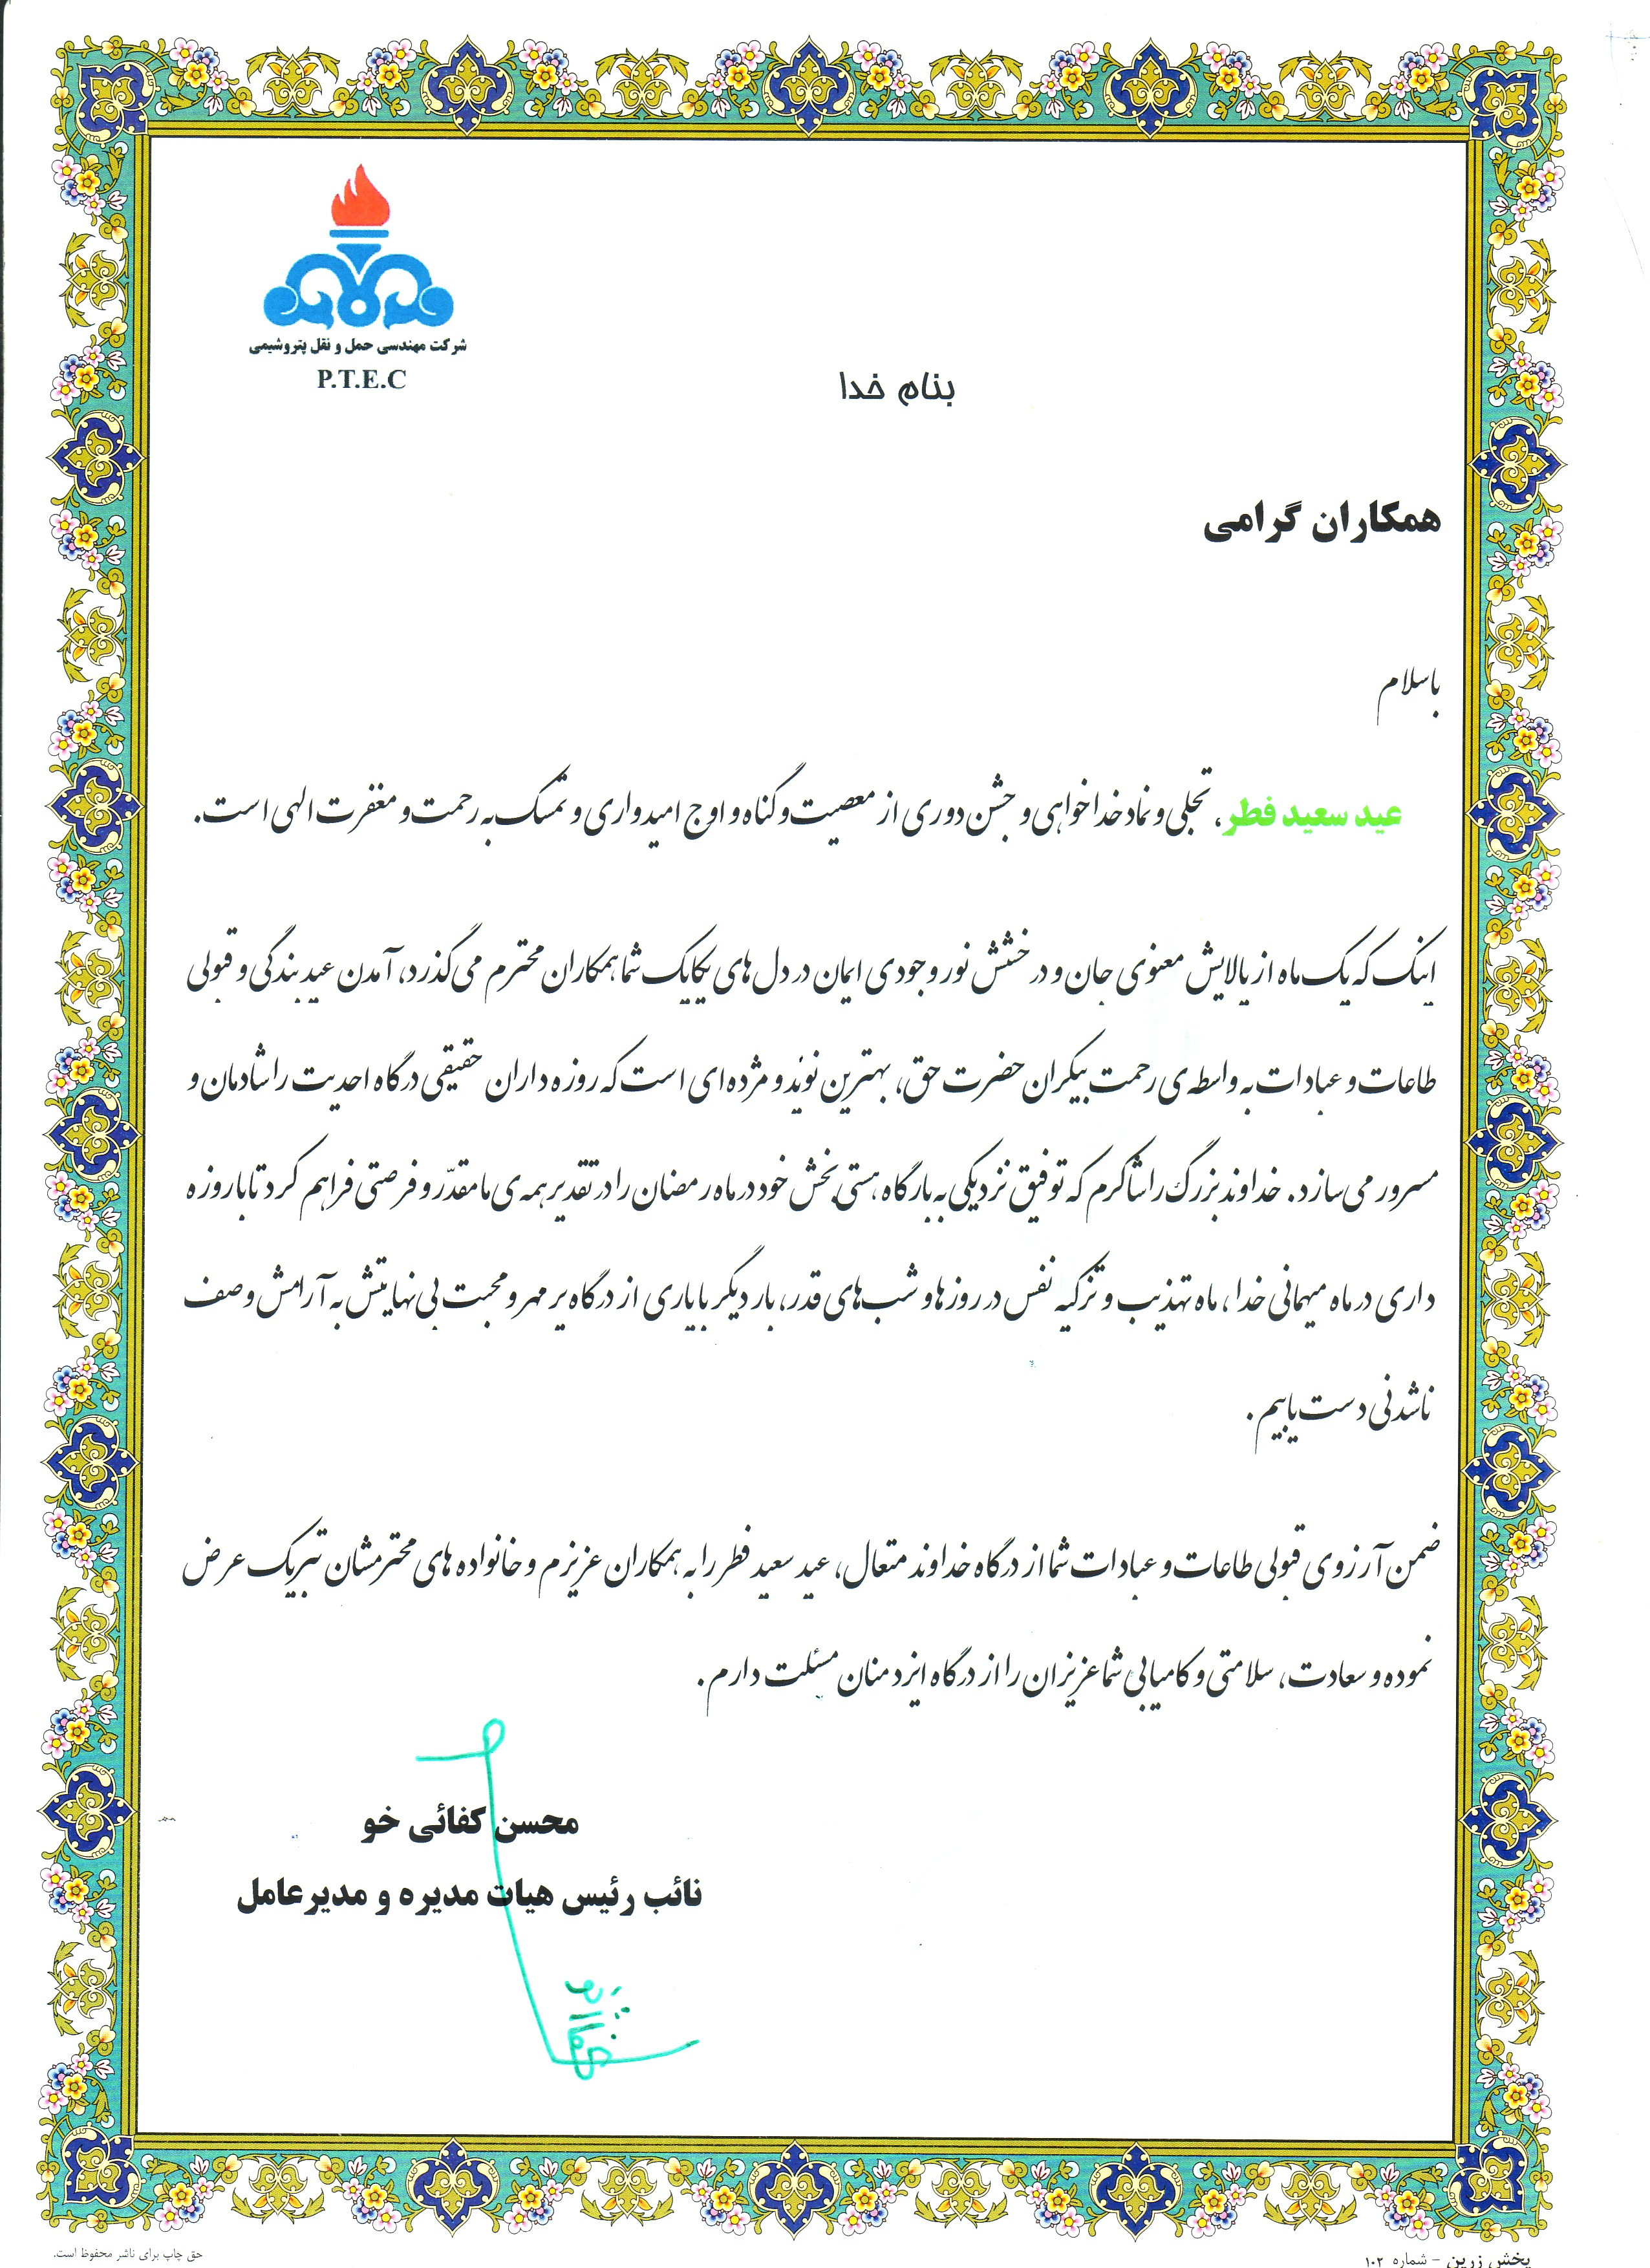 شرکت مهندسی حمل و نقل پتروشیمی
P.T.E.C
بنام خدا
همکاران گرامی
باسلام
عید سعید فطر، تجلی و نماد خداخواهی و جشن دوری از معصیت و گناه و اوج امیدواری و تمسک به رحمت و مغفرت الهی است.
اینک که یک ماه از پالایش معنوی جان و درخشش نور وجودی ایمان در دل های یکایک شما همکاران محترم می گذرد، آمدن عید بندگی و قبولی
طاعات و عبادات به واسطه ی رحمت بیکران حضرت حق، بهترین نوید و مژده ای است که روزه داران حقیقی درگاه احدیت را شادمان و
مسرور می سازد. خداوند بزرگ را شاکرم که توفیق نزدیکی به بارگاه هستی بخش خود در ماه رمضان را در تقدیر همه ی ما مقدّر و فرصتی فراهم کرد تا با روزه
داری در ماه میهمانی خدا، ماه تهذیب و تزکیه نفس در روزها و شب های قدر، بار دیگر با یاری از درگاه پر مهر و محبت بی نهایتش به آرامش وصف
ناشدنی دست یابیم.
ضمن آرزوی قبولی طاعات و عبادات شما از درگاه خداوند متعال، عید سعید فطر را به همکاران عزیزم و خانواده های محترمشان تبریک عرض
نموده و سعادت، سلامتی و کامیابی شما عزیزان را از درگاه ایزد منان مسئلت دارم.
محسن کفائی خو
نائب رئیس هیات مدیره و مدیرعامل
پخش زرین - شماره ۱۰۲
حق چاپ برای ناشر محفوظ است.